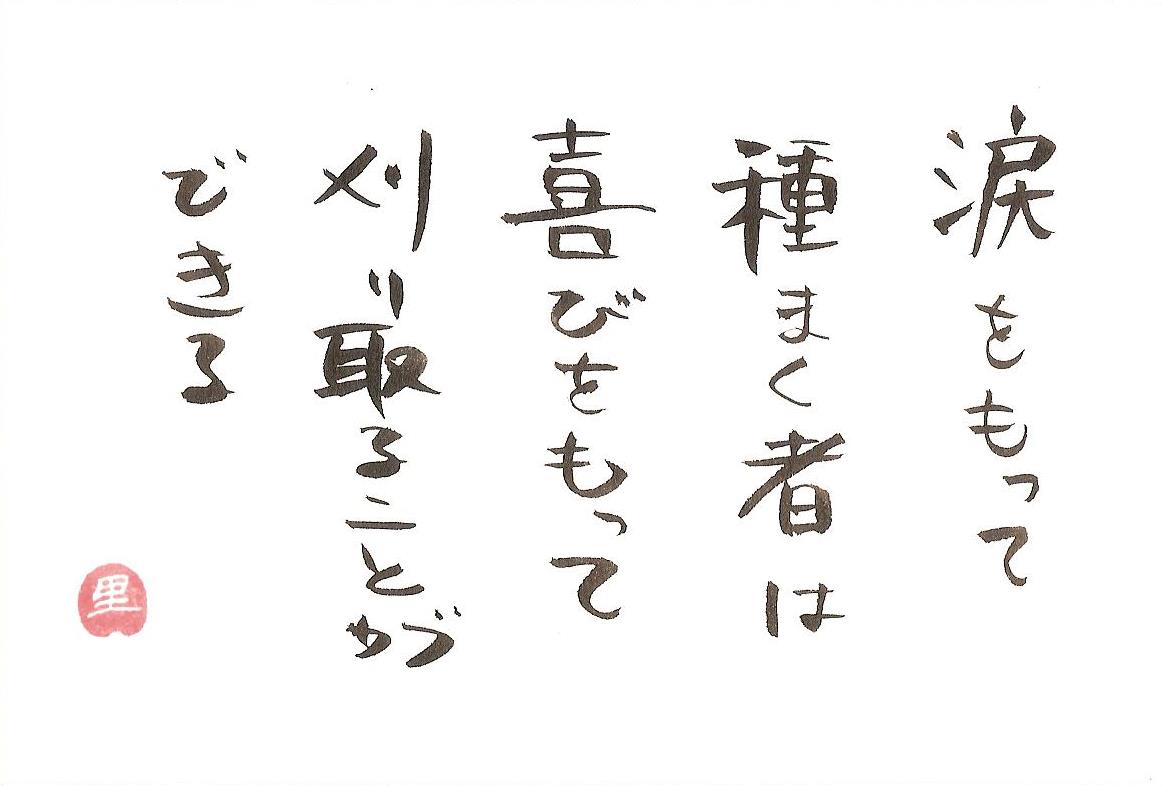 涙をもって
種まく者は
喜びをもって
刈り取ることが
できる
里